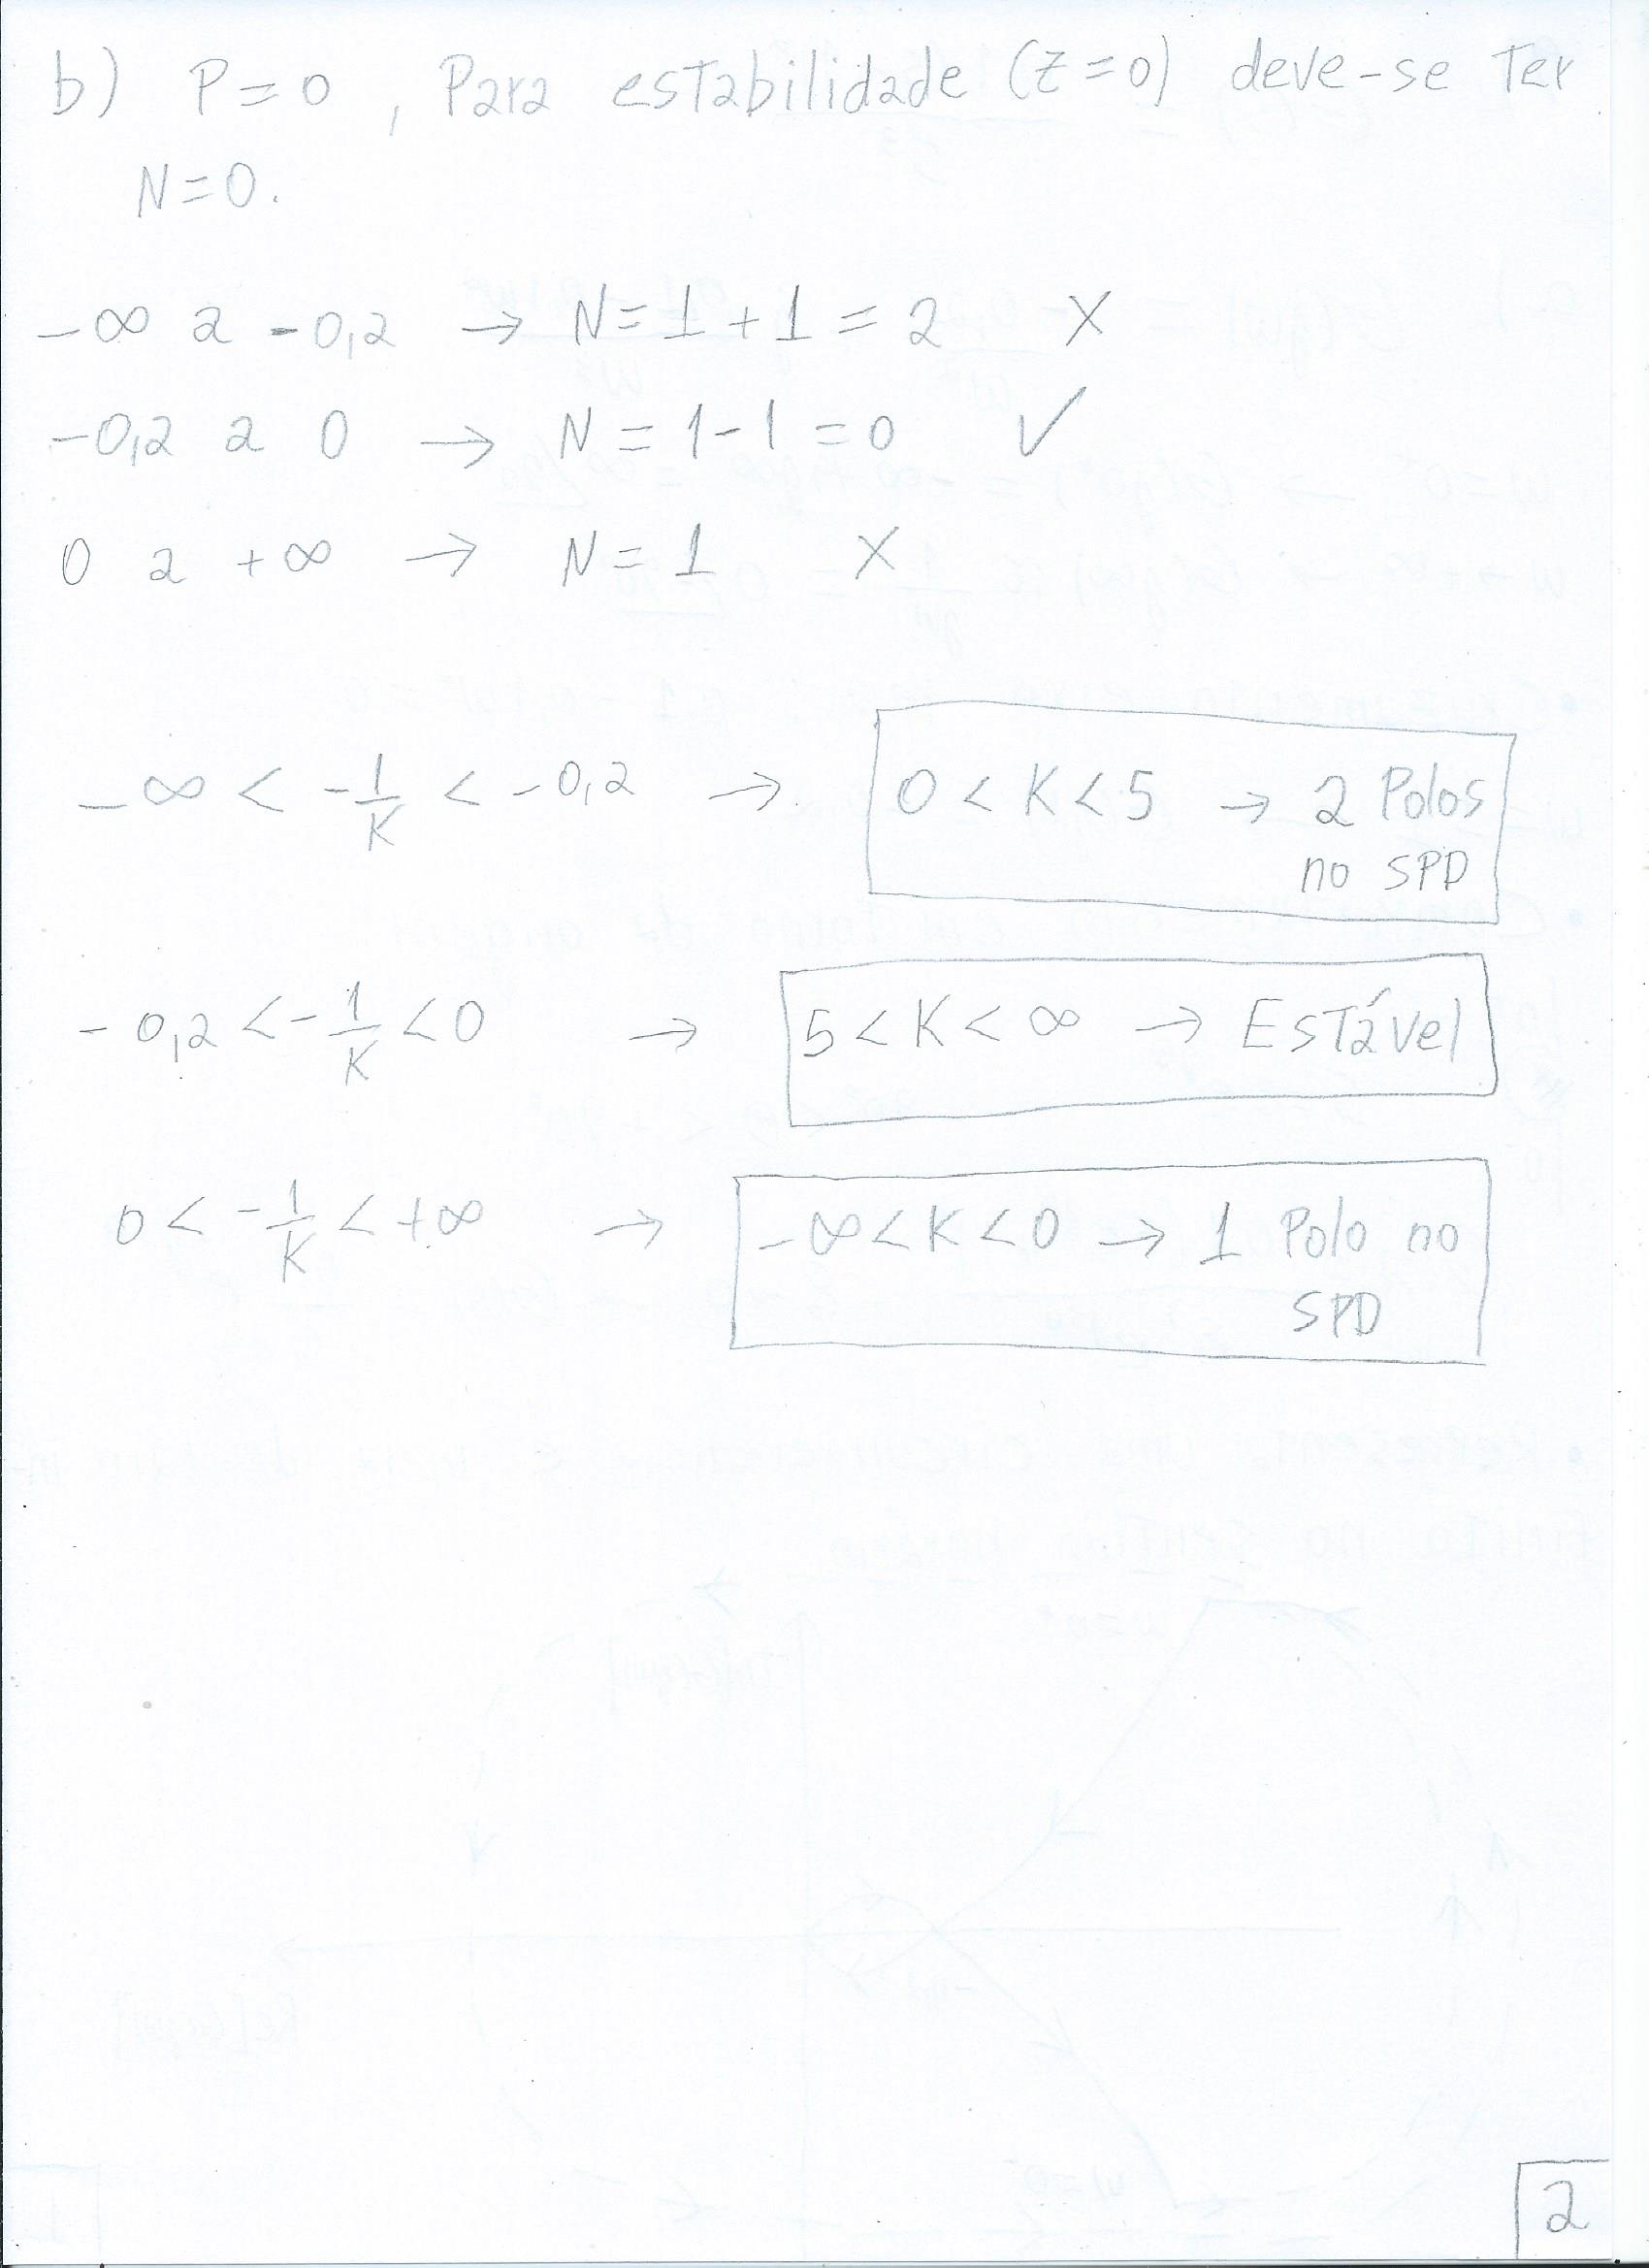 b) P=0, Para estabilidade (Z=0) deve-se Ter
N=0.
-∞ a -0,2 → N=1+1=2 X
-0,2 a 0 → N=1-1=0 ✓
0 a +∞ → N=1 X
-∞ < -1/K < -0,2 → 0<K<5 → 2 Polos
no SPD
-0,2 < -1/K < 0 → 5<K<∞ → Estável
0 < -1/K < +∞ → -∞<K<0 → 1 Polo no
SPD
2